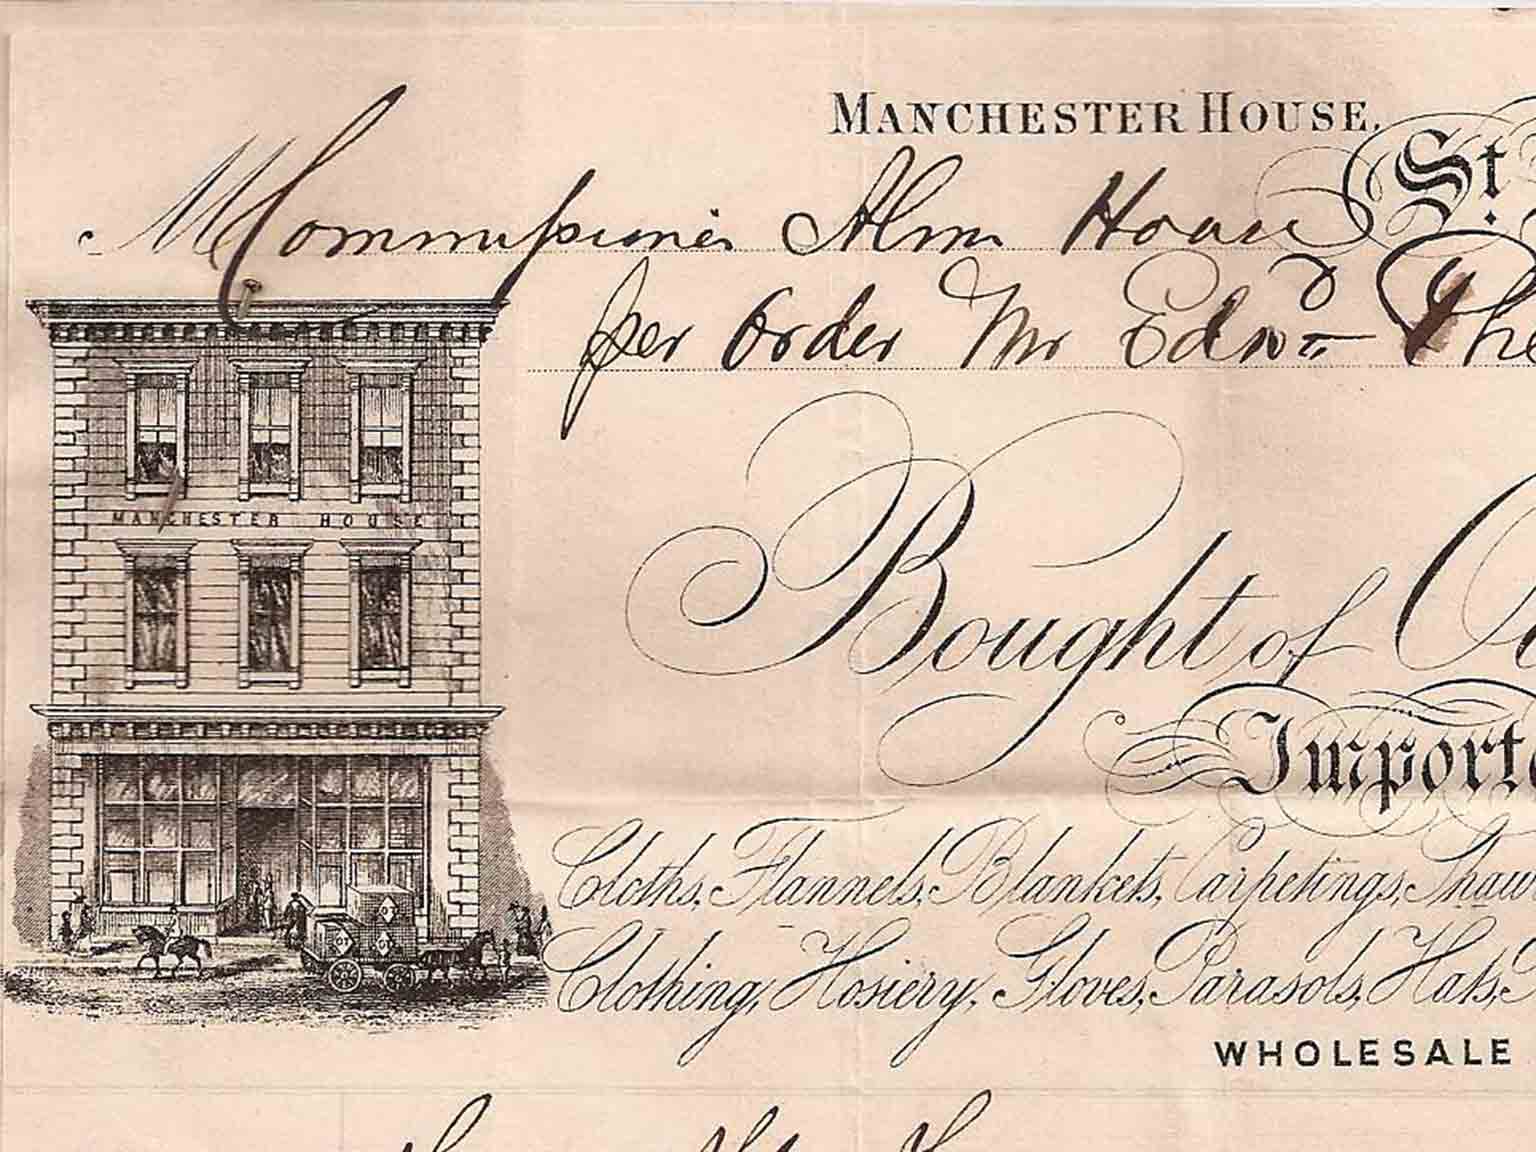 MANCHESTER HOUSE.
St.
M Commissioners Alms House
per Order Mr Edwd
MANCHESTER HOUSE
Bought of
Importe
Cloths, Flannels, Blankets, Carpetings, Shaw
Clothing, Hosiery, Gloves, Parasols, Hats,
WHOLESALE